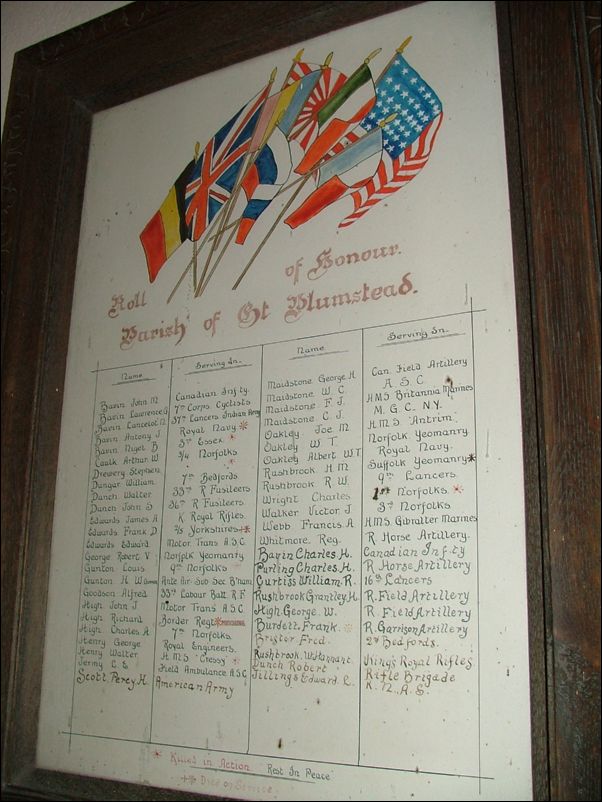 Roll of Honour.
Parish of Gt Plumstead.
Name
Bavin John M.
Bavin Lawrence G
Bavin Lancelot N
Bavin Antony J.
Bavin Nigel B
Caulk Arthur W.
Drewery Stephen
Dungar William
Dunch Walter
Dunch John S
Edwards James A
Edwards Frank D
Edwards Edward
George Robert V
Gunton Louis
Gunton H W
Goodson Alfred
High John J
High Richard
High Charles A
Henry George
Henry Walter
Jermy C S
Scott Percy H.
Serving In.
Canadian Infty.
7th Corps Cyclists
37th Lancers Indian Army
Royal Navy *
3rd Essex *
3/4 Norfolks
7th Bedfords
33rd R Fusileers
36th R Fusileers
K Royal Rifles
2/5 Yorkshires **
Motor Trans A.S.C.
Norfolk Yeomanry
9th Norfolks *
Ante Air Sub Sec B'ham
33rd Labour Batt R F
Motor Trans A.S.C
Border Regt
7th Norfolks
Royal Engineers.
H M S "Cressy" *
Field Ambulance A.S.C
American Army
Name
Maidstone George H
Maidstone W C
Maidstone F J.
Maidstone C J.
Oakley Joe M
Oakley W T.
Oakley Albert W T
Rushbrook H M
Rushbrook R W.
Wright Charles
Walker Victor J
Webb Francis A
Whitmore Reg.
Bavin Charles H.
Purling Charles H.
Curtiss William R.
Rushbrook Grantley H.
High George W.
Burdett, Frank. *
Bristor Fred.
Rushbrook. W. Hannant.
Dunch Robert
Jillings Edward. L.
Serving In.
Can Field Artillery
A. S. C
H M S Britannia Marines
M. G. C. N.Y.
H.M.S. "Antrim".
Norfolk Yeomanry
Royal Navy.
Suffolk Yeomanry *
9th Lancers
1st Norfolks. *
3rd Norfolks
H.M.S. Gibralter Marines
R Horse Artillery.
Canadian Infty
R Horse Artillery
16th Lancers
R. Field Artillery
R. Field Artillery
R. Garrison Artillery
2nd Bedfords.
King's Royal Rifles
Rifle Brigade
R. N. A. S.
* Killed in Action Rest In Peace
** Died on Service